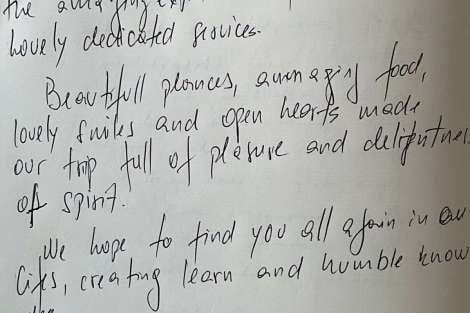 the amazing exp
lovely dedicated services.
Beautifull places, amazing food,
lovely smiles and open hearts made
our trip full of plesure and delightnes
of spirit.
We hope to find you all again in our
lifes, creating learn and humble know